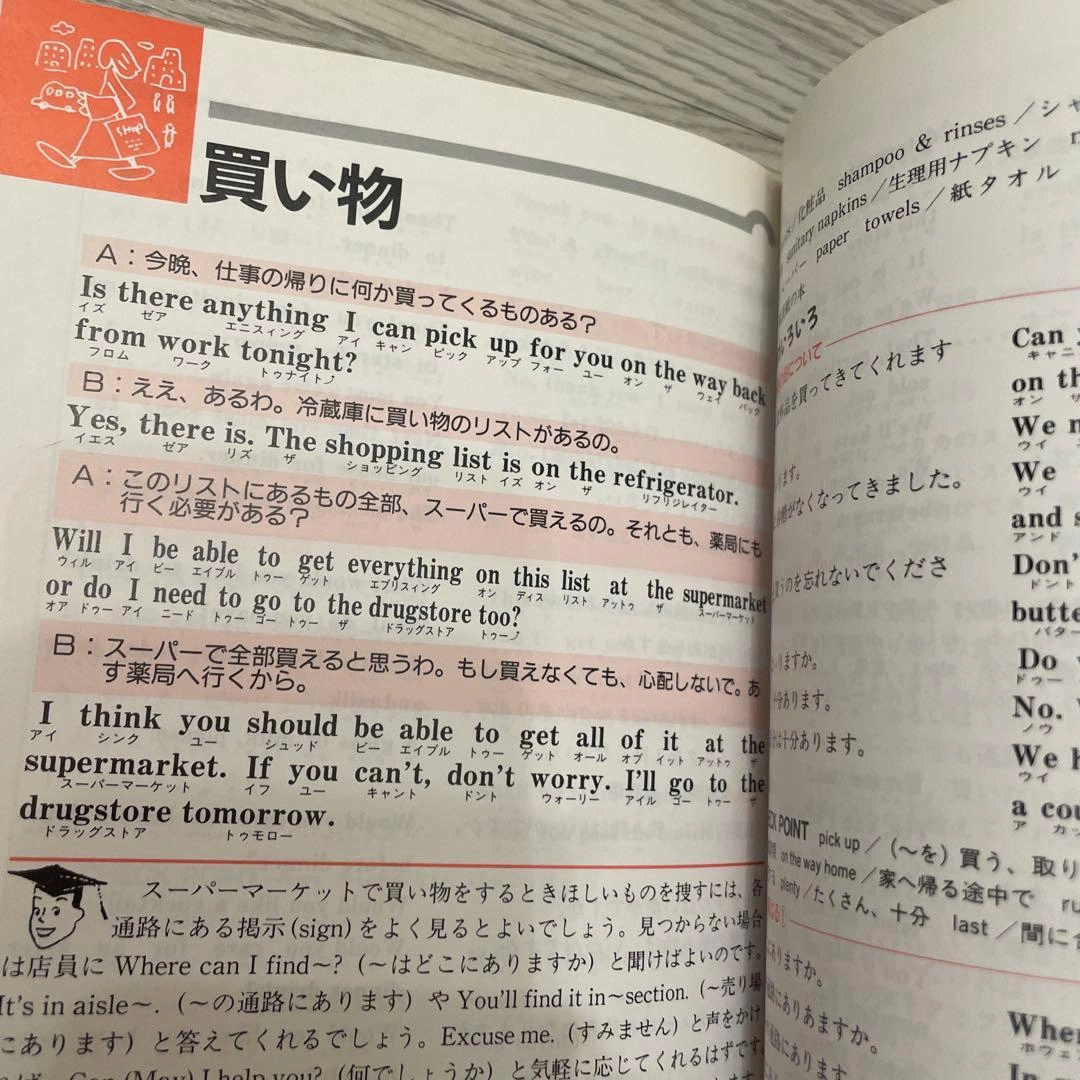 SHOP
買い物
A：今晩、仕事の帰りに何か買ってくるものある？
Is there anything I can pick up for you on the way back
イズ ゼア エニスィング アイ キャン ピック アップ フォー ユー オン ザ ウェイ バック
from work tonight?
フロム ワーク トゥナイト⤴
B：ええ、あるわ。冷蔵庫に買い物のリストがあるの。
Yes, there is. The shopping list is on the refrigerator.
イエス ゼア リズ ザ ショッピング リスト イズ オン ザ リフリジレイター
A：このリストにあるもの全部、スーパーで買えるの。それとも、薬局にも
行く必要がある？
Will I be able to get everything on this list at the supermarket
ウィル アイ ビー エイブル トゥー ゲット エブリスィング オン ディス リスト アットゥ ザ スーパーマーケット
or do I need to go to the drugstore too?
オア ドゥー アイ ニード トゥー ゴー トゥー ザ ドラッグストア トゥー⤴
B：スーパーで全部買えると思うわ。もし買えなくても、心配しないで。あ
す薬局へ行くから。
I think you should be able to get all of it at the
アイ シンク ユー シュッド ビー エイブル トゥー ゲット オール オブ イット アットゥ ザ
supermarket. If you can't, don't worry. I'll go to the
スーパーマーケット イフ ユー キャント ドント ウォーリー アイル ゴー トゥー ザ
drugstore tomorrow.
ドラッグストア トゥモロー
スーパーマーケットで買い物をするときほしいものを捜すには、各
通路にある掲示(sign)をよく見るとよいでしょう。見つからない場合
は店員に Where can I find～?（～はどこにありますか）と聞けばよいのです。
It's in aisle～.（～の通路にあります）や You'll find it in～section.（～売り場
にあります）と答えてくれるでしょう。Excuse me.（すみません）と声をかけ
Can (May) I help you?（何でしょうか）と気軽に応じてくれるはずです
／化粧品 shampoo & rinses／シャ
sanitary napkins／生理用ナプキン
ーパー paper towels／紙タオル
の本
いろいろ
について
品を買ってきてくれます
ります。
がなくなってきました。
買うのを忘れないでくださ
りますか。
十分あります。
は十分あります。
Can y
キャニ
on th
オン ザ
We n
ウイ
We
ウイ
and s
アンド
Don'
ドント
butte
バター
Do
ドゥー
No.
ノウ
We h
ウイ
a cou
ア カッ
CK POINT pick up／（～を）買う、取り
on the way home／家へ帰る途中で ru
plenty／たくさん、十分 last／間に合
にありますか。
にありあますか。
通路にあります。
Wher
ホウェア
In